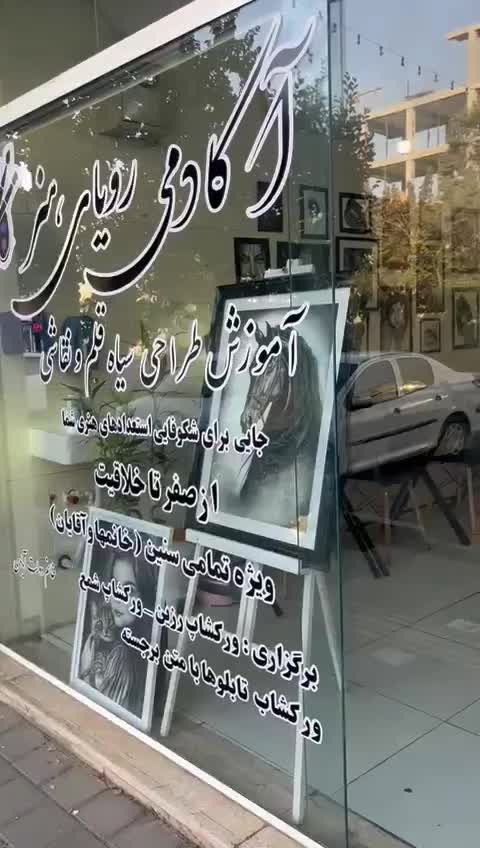 آکادمی رویای هنر
آموزش طراحی سیاه قلم و نقاشی
جایی برای شکوفایی استعدادهای هنری شما
از صفر تا خلاقیت
ویژه تمامی سنین (خانمها و آقایان)
برگزاری : ورکشاپ رزین _ ورکشاپ شمع
ورکشاپ تابلوها با متن برجسته